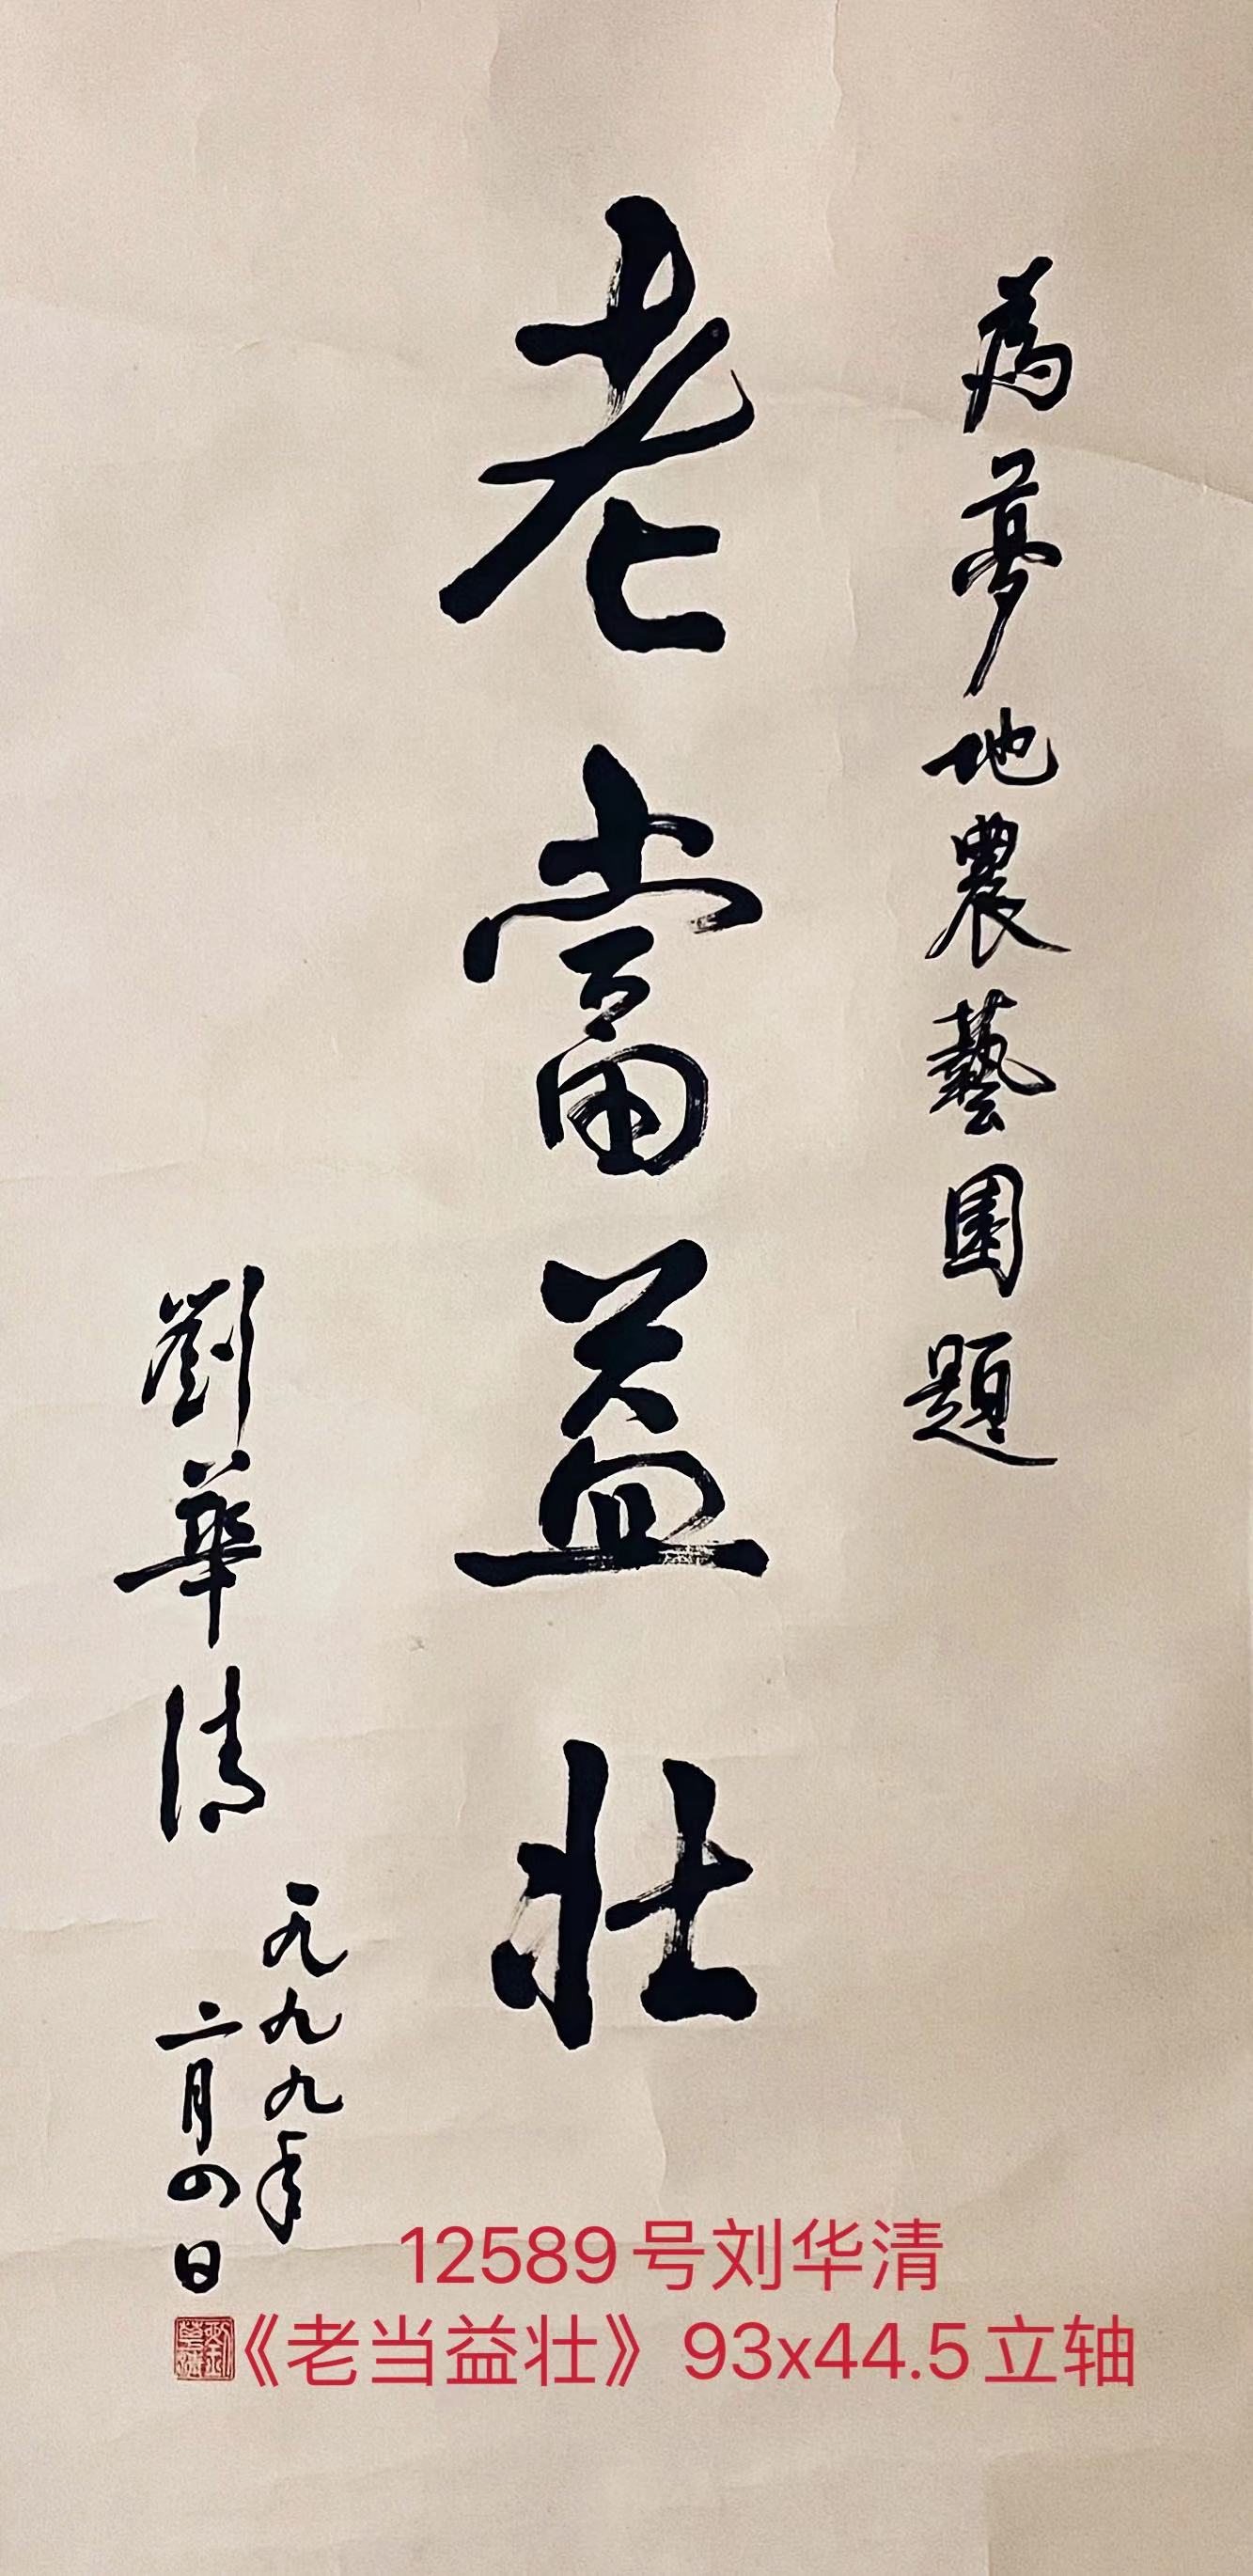 為夢地農藝園題
老當益壯
劉華清
一九九九年
二月四日
劉華清
12589号刘华清
《老当益壮》93x44.5立轴